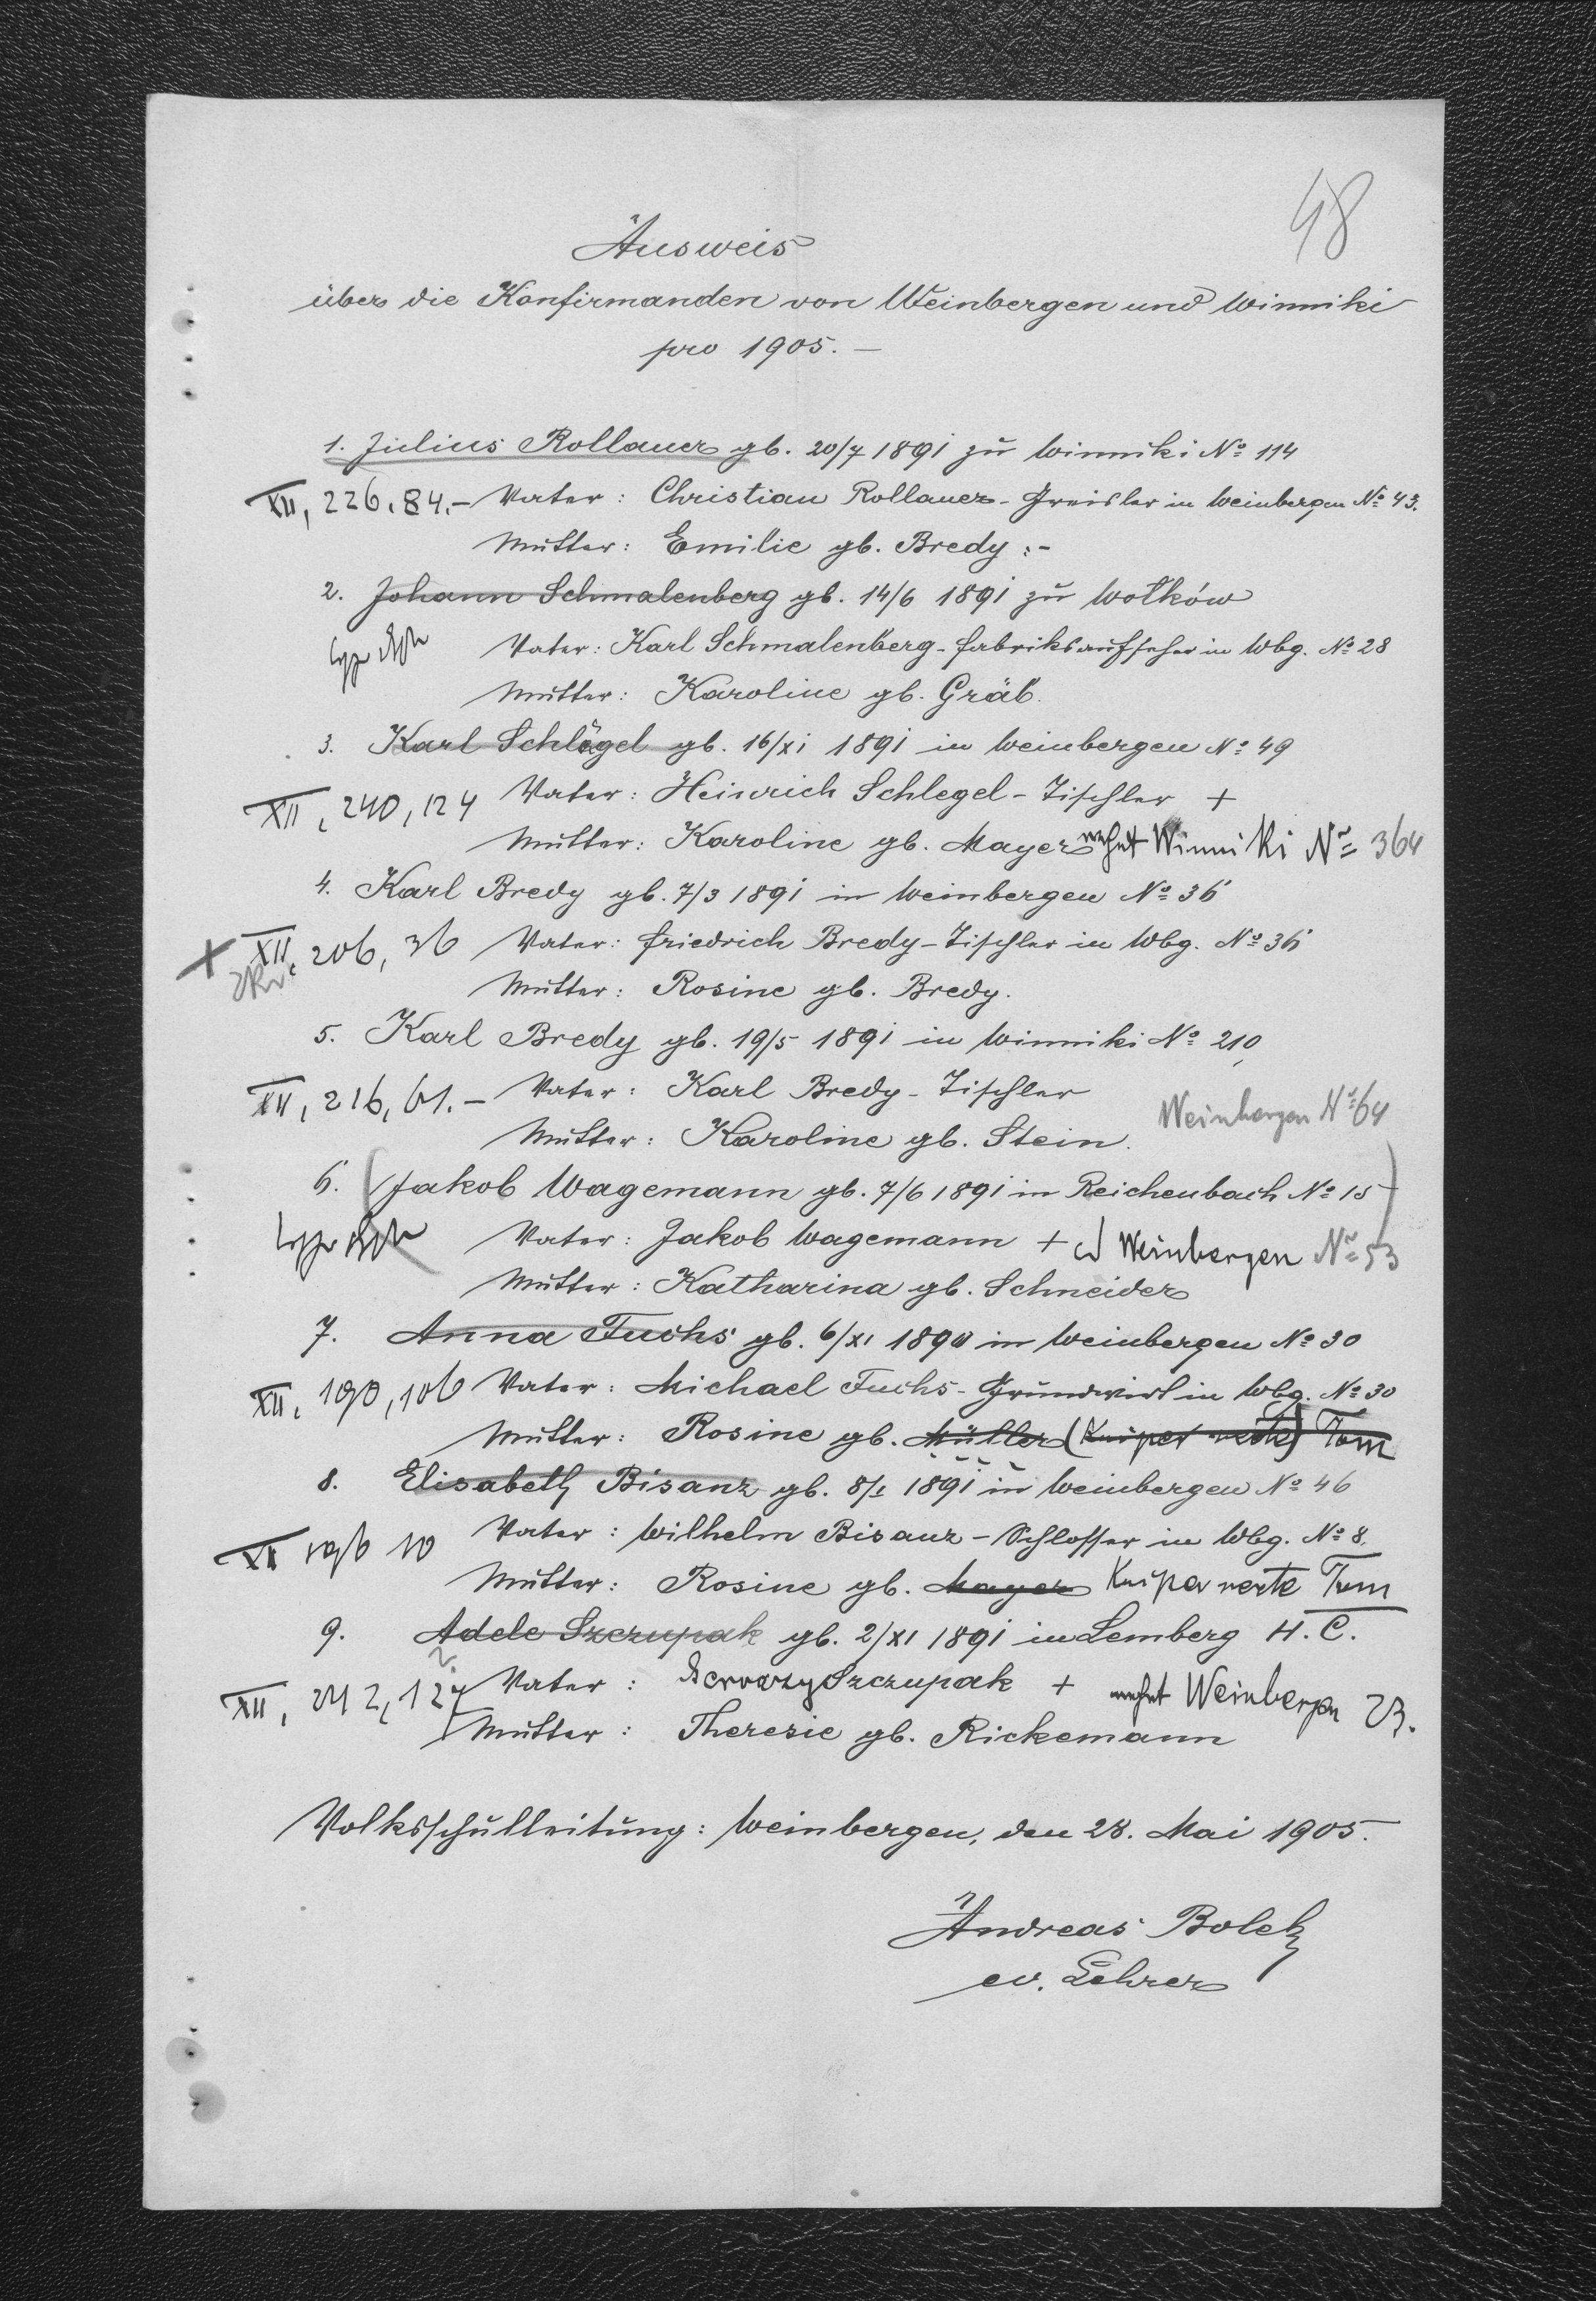 48
Ausweis
über die Konfirmanden von Weinbergen und Winniki
pro 1905. —
1. Julius Rollauer gb. 20/7 1891 zu Winniki Nº 114
XII, 226, 84.- Vater: Christian Rollauer - Greisler in Weinbergen Nº 43.
Mutter: Emilie gb. Bredy :-
2. Johann Schmalenberg gb. 14/6 1891 zu Wołków
Vater: Karl Schmalenberg - Fabriksaufseher in Wbg. Nº 28
Mutter: Karoline gb. Gräb.
3. Karl Schlögel gb. 16/XI 1891 in Weinbergen Nº 49
XII, 240, 124 Vater: Heinrich Schlegel - Tischler +
Mutter: Karoline gb. Mayer wohnt Winniki Nº 364
4. Karl Bredy gb. 7/3 1891 in Weinbergen Nº 36
X XII, 206, 36 Vater: Friedrich Bredy - Tischler in Wbg. Nº 36
Mutter: Rosine gb. Bredy.
5. Karl Bredy gb. 19/5 1891 in Winniki Nº 210,
XII, 216, 61.- Vater: Karl Bredy - Tischler
Weinbergen Nº 64
Mutter: Karoline gb. Stein.
6. (Jakob Wagemann gb. 7/6 1891 in Reichenbach Nº 15)
Vater: Jakob Wagemann + Weinbergen Nº 53
Mutter: Katharina gb. Schneider
7. Anna Fuchs gb. 6/XI 1890 in Weinbergen Nº 30
XII, 190, 106 Vater: Michael Fuchs - Grundwirt in Wbg. Nº 30
Mutter: Rosine gb. Müller (Kniper recte) Tom
8. Elisabeth Bisanz gb. 8/I 1891 in Weinbergen Nº 46
XII 196 10 Vater: Wilhelm Bisanz - Schlosser in Wbg. Nº 8.
Mutter: Rosine gb. Mayer Kniper recte Tom
9. Adele Szczupak gb. 2/XI 1891 in Lemberg H. C.
XII, 242, 127 Vater: Szczupak + wohnt Weinbergen 23.
Mutter: Theresie gb. Rickemann
Volksschulleitung: Weinbergen, den 28. Mai 1905.
Andreas Bolek
ev. Lehrer